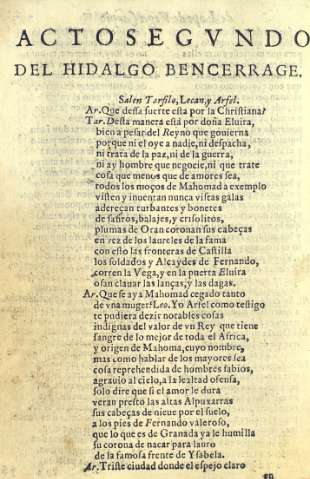 ACTO SEGVNDO
DEL HIDALGO BENCERRAGE.
Salen Tarfilo, Lecan, y Arfel.
Ar. Que dessa suerte esta por la Christiana?
Tar. Desta manera està por doña Eluira,
bien a pesar del Reyno que gouierna
porque ni el oye a nadie, ni despacha,
ni trata de la paz, ni de la guerra,
ni ay hombre que negocie, ni que trate
cosa que menos que de amores sea,
todos los moços de Mahomad a exemplo
visten y inuentan nunca vistas galas
adereçan turbantes y bonetes
de safiros, balajes, y crisolitos,
plumas de Oran coronan sus cabeças
en vez de los laureles de la fama
con esto las fronteras de Castilla
los soldados y Alcaydes de Fernando,
corren la Vega, y en la puerta Eluira
osan clauar las lanças, y las dagas.
Ar. Que se aya Mahomad cegado tanto
de vna muger? Leo. Yo Arfel como testigo
te pudiera dezir notables cosas
indignas del valor de vn Rey que tiene
sangre de lo mejor de toda el Africa,
y origen de Mahoma, cuyo nombre,
mas como hablar de los mayores sea
cosa reprehendida de hombres sabios,
agrauio al cielo, a la lealtad ofensa,
solo dire que si el amor le dura
veran presto las altas Alpuxarras
sus cabeças de nieue por el suelo,
a los pies de Fernando valeroso,
que lo que es de Granada ya le humilla
su corona de nacar para lauro
de la famosa frente de Ysabela.
Ar. Triste ciudad donde el espejo claro
en